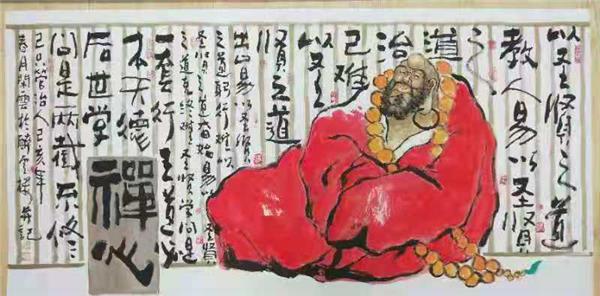 以圣贤之道
教人易以圣贤
之
道治
己难
以圣
贤之道
出口易以圣贤
之道躬行难以
圣贤之道奋始易以圣贤
之道克终难圣贤学问是
一套行王道必
本天德
后世学
问是两截不修
己只管治人己亥年
春月闲云於并记
禪心